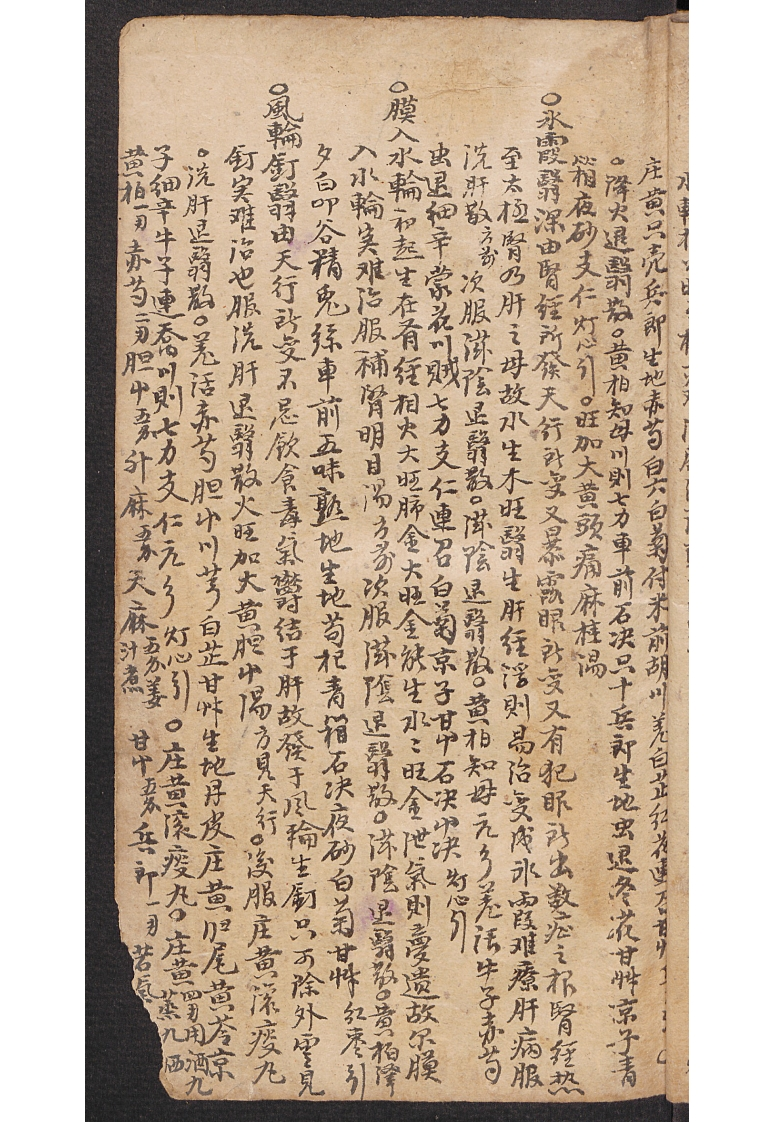 庄黄只壳兵郎生地赤芍白六白菊付米前胡川羌白芷红花連
。降火退翳散。黄柏知母川則七力車前石决只十兵郎生地虫退冬花甘艸京子青
箱夜砂支仁灯心引。旺加大黄頭痛麻桂湯
○氷霞翳深由腎経所發天行所变又暴露眼所变又有犯眼所出数症之根腎経热
至太極腎乃肝之母故水生木旺翳生肝経浮則易治变成氷霞难療肝病服
洗肝散方前次服滋陰退翳散。滋陰退翳散。黄柏知母元参羌活牛子赤芍
虫退細辛蒙花川賊七力支仁連召白菊京子甘中石决中决灯心引
○膜入水輪初起生在肾経相火大旺肺金大旺金能生水〻旺金泄氣則憂遺故尔膜
入水輪实难治服補腎明目湯方前次服滋陰退翳散。滋陰退翳散。黄柏降
夕白叩谷精兎絲車前五味熟地生地苟杞青箱石决夜砂白菊甘艸红枣引
○風輪釘翳由天行所变不忌飲食毒氣鬱结于肝故發于風輪生釘只可除外雲見
釘实难治也服洗肝退翳散火旺加大黄胆中湯方見天行。後服庄黄滚痰九
。洗肝退翳散。羌活赤芍胆中川芎白芷甘艸生地丹皮庄黄归尾黄芩京
子細辛牛子連召川則七力支仁元参灯心引。庄黄滚痰九。庄黄四刄用酒九蒸九洒
黄柏一刄赤芍二刄胆中五分升麻五分天麻五分姜汁煮甘中五分兵郎一刄